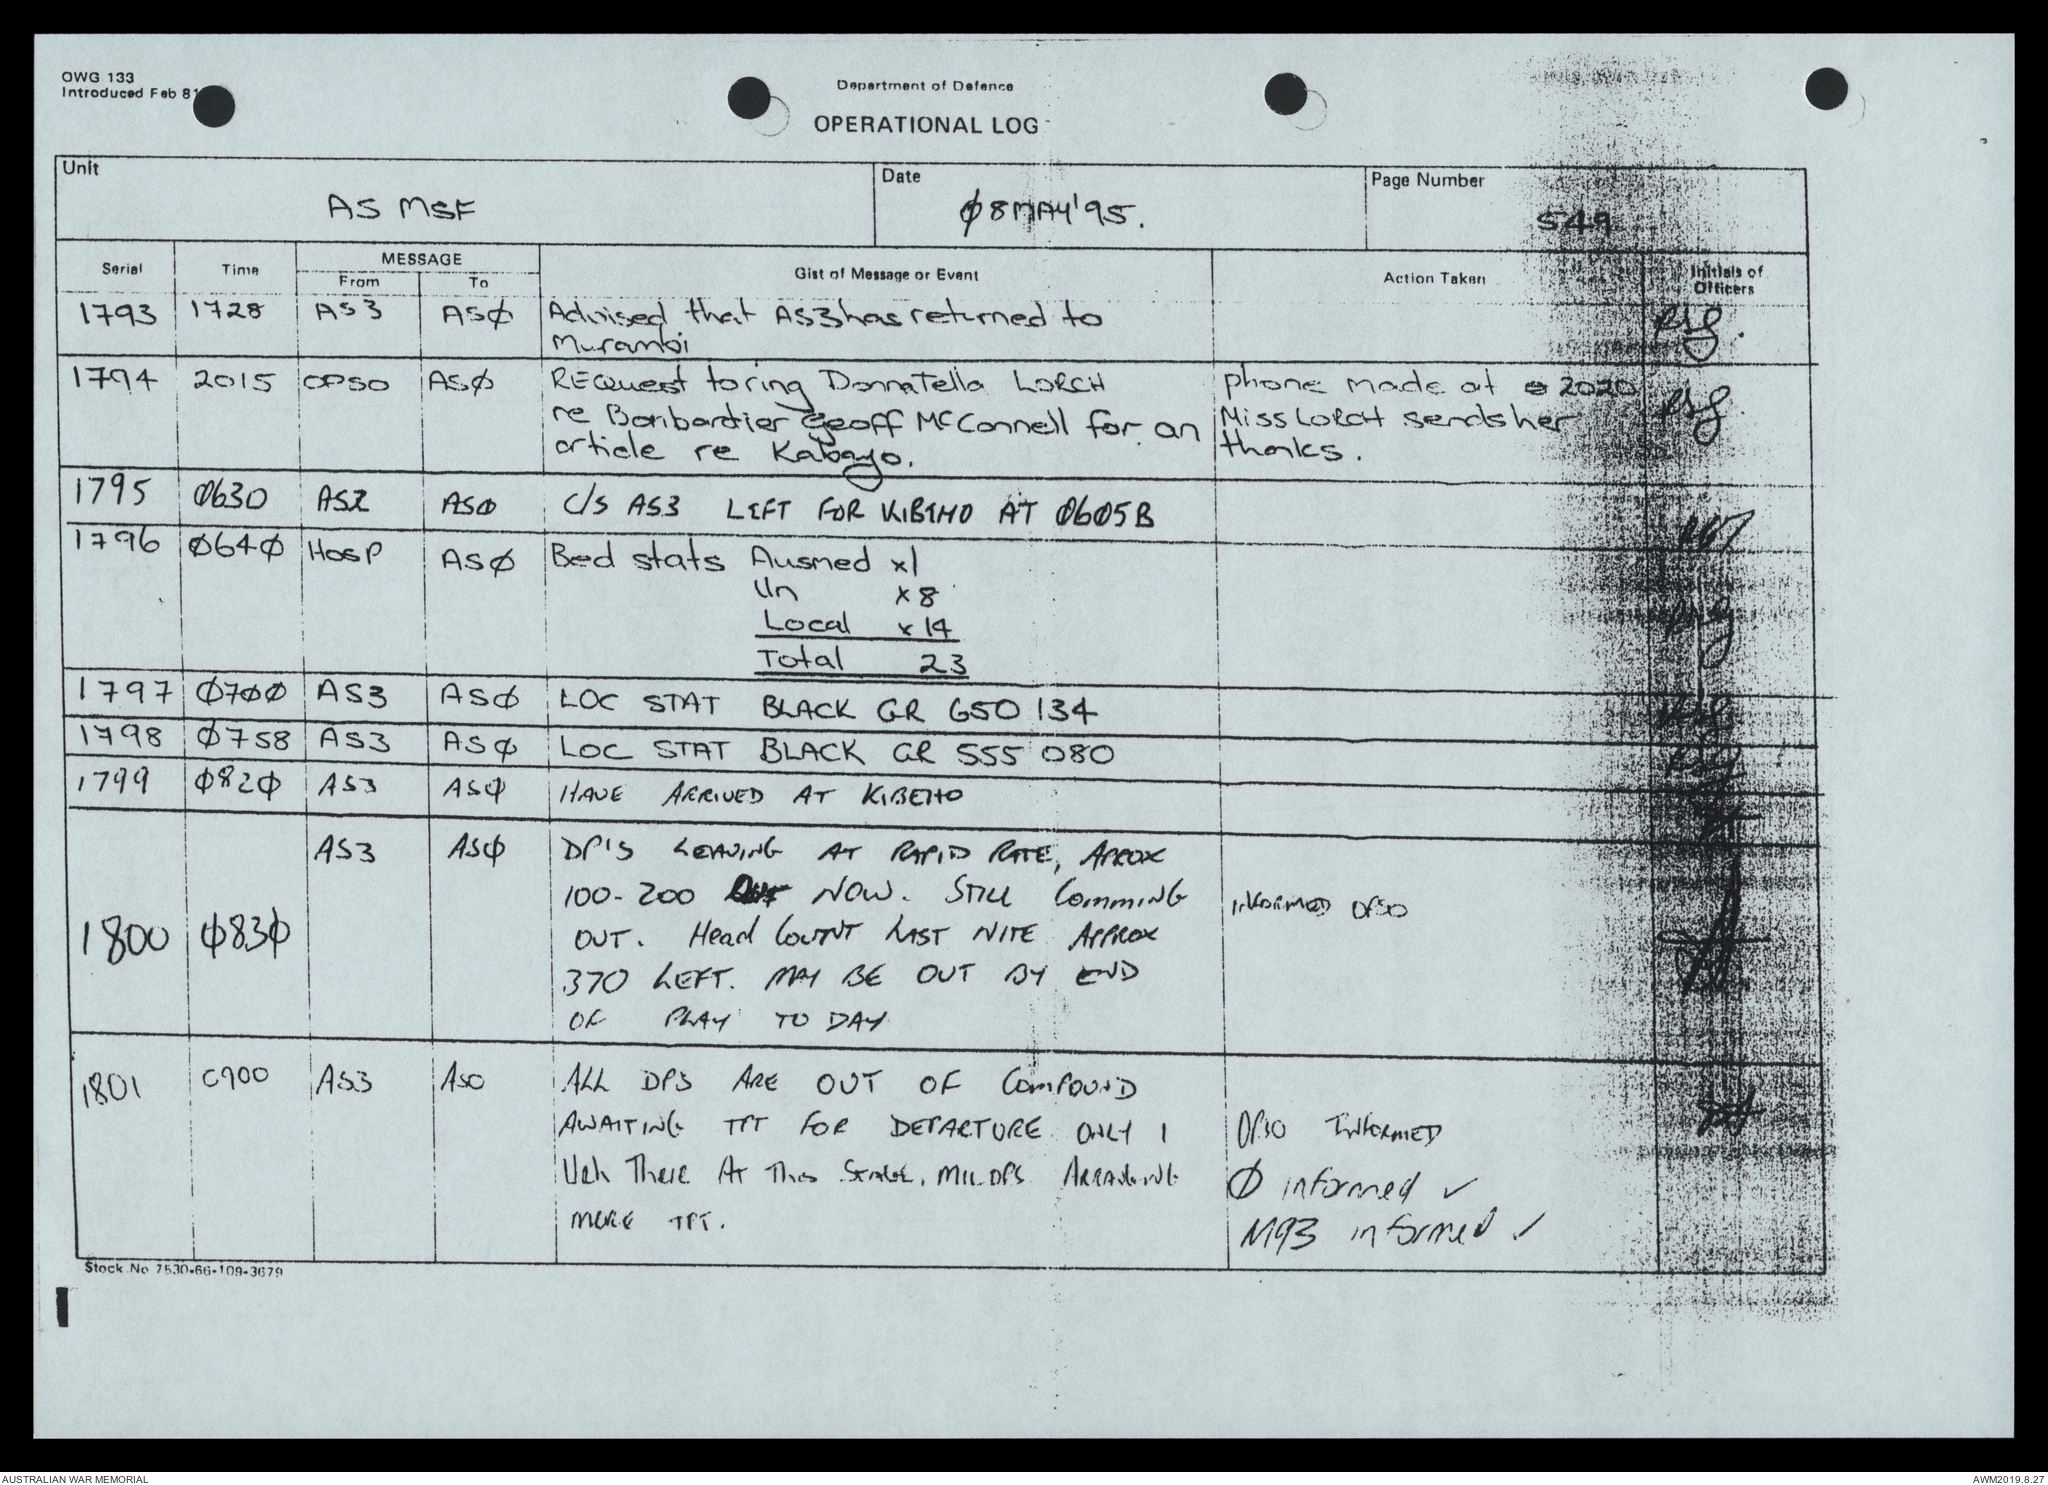 OWG 133
Introduced Feb 81
Department of Defence
OPERATIONAL LOG
Unit
AS MSF
Date
Ø8MAY'95.
Page Number
549
Serial
Time
MESSAGE
From
To
Gist of Message or Event
Action Taken
Initials of
Officers
1793 1728 AS3 ASØ Advised that AS3 has returned to
Murambi
1794 2015 OPSO ASØ REquest to ring DonnaTella LORCH phone made at 2020
re Bombardier Geoff McConnell for an Miss LORCH sends her
article re Kabayo. thanks.
1795 Ø630 AS2 ASØ C/S AS3 LEFT FOR KIBEHO AT Ø6Ø5B
1796 Ø64Ø HOSP ASØ Bed stats Ausmed x1
Un x 8
Local x 14
Total 23
1797 Ø7ØØ AS3 ASØ LOC STAT BLACK GR 650 134
1798 Ø758 AS3 ASØ LOC STAT BLACK GR 555 080
1799 Ø82Ø AS3 ASØ HAVE ARRIVED AT KIBEHO
AS3 ASØ DP'S LEAVING AT RAPID RATE, APROX
100-200 NOW. STILL COMMING INFORMED OPSO
1800 Ø83Ø OUT. Head COUNT LAST NITE APPROX
370 LEFT. MAY BE OUT BY END
OF PLAY TO DAY
1801 0900 AS3 AS0 ALL DPS ARE OUT OF COMPOUND
AWAITING TPT FOR DEPARTURE ONLY 1 OPSO INFORMED
Veh There At This Stage. MILOPS ARRANGING Ø informed ✓
MORE TPT. M93 informed ✓
Stock No 7530-66-109-3679
AUSTRALIAN WAR MEMORIAL
AWM2019.8.27